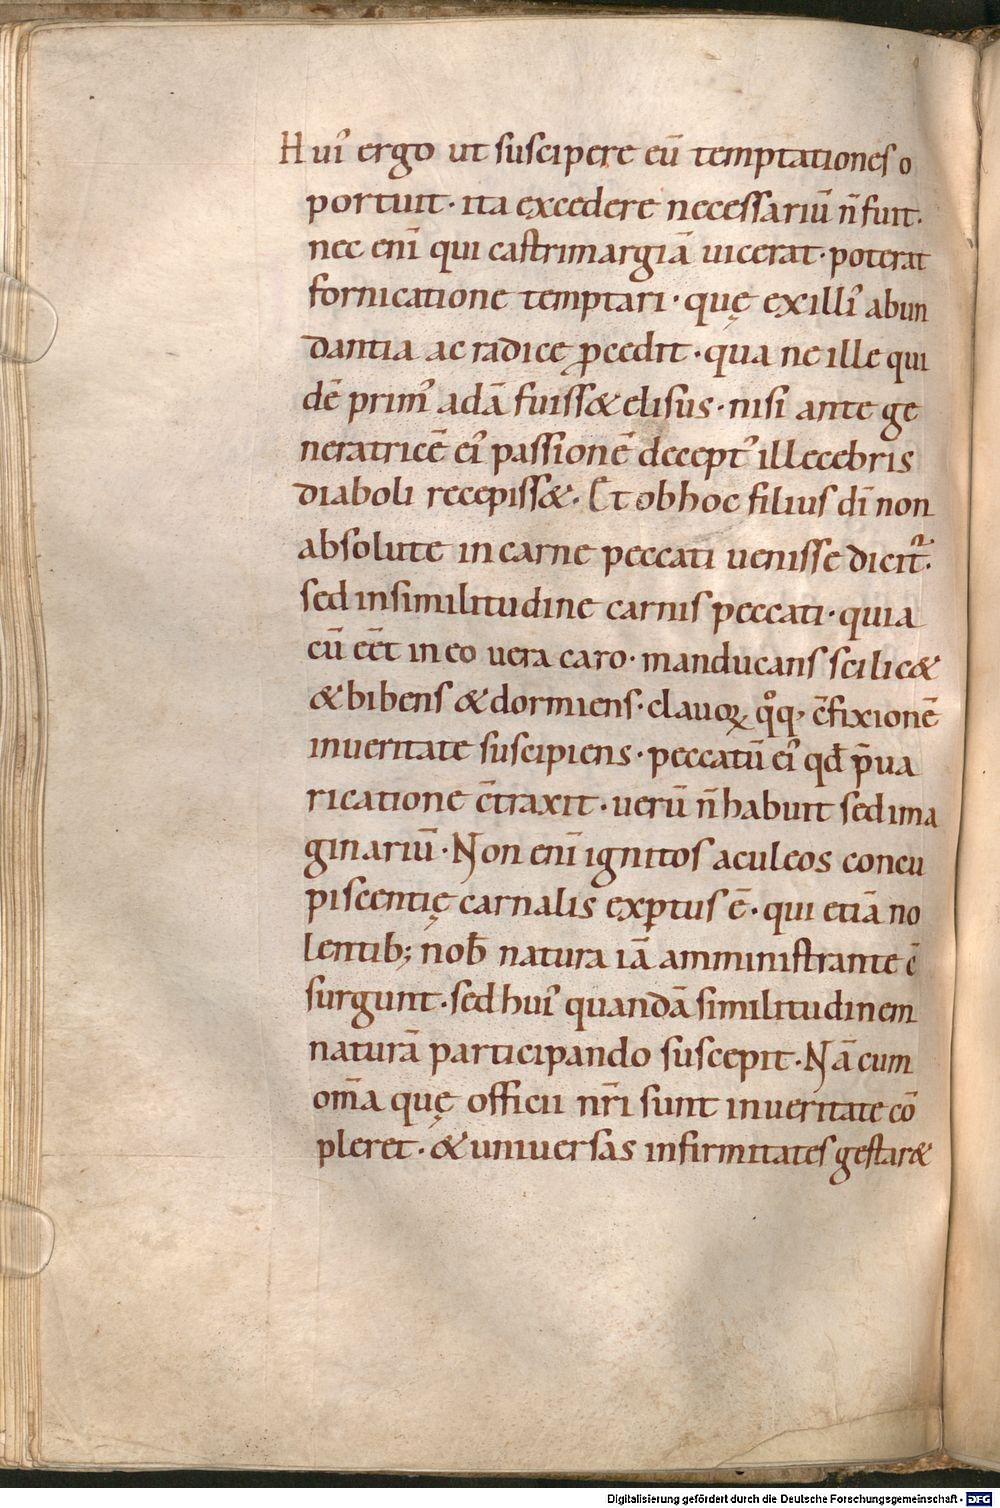 Hui᾽ ergo ut suscipere eū temptationes o
portuit · ita excedere necessariū n̄ fuit.
nec eni̅ qui castrimargiā uicerat · poterat
fornicatione temptari · quę exilli᾽ abun
dantia ac radice ꝓcedit · qua ne ille qui
dē prim᾽ adā fuiss& elisus · nisi ante ge
neratricē ei᾽ passionē decept᾽ illecebris
diaboli recepiss&. Et obhoc filius di̅ non
absolute incarne peccati uenisse dicit᷑.
sed insimilitudine carnis peccati · quia
cū eēt ineo uera caro · manducans scilic&
& bibens & dormiens · clauoꝝ qͦq, c̄fixionē
inueritate suscipiens · peccatū ei᾽ qđ p̄ua
ricatione c̄traxit · uerū n̄ habuit sed ima
ginariū · Non eni̅ ignitos aculeos concu
piscentię carnalis exꝑtus ē · qui etiā no
lentib; nob̄ natura iā amministrante ē
surgunt · sed hui᾽ quandā similitudinem
naturā participando suscepit · Nā cum
om̄a quę officii nr̄i sunt inueritate cō
pleret · & uniuersas infirmitates gestar&
Digitalisierung gefördert durch die Deutsche Forschungsgemeinschaft - DFG